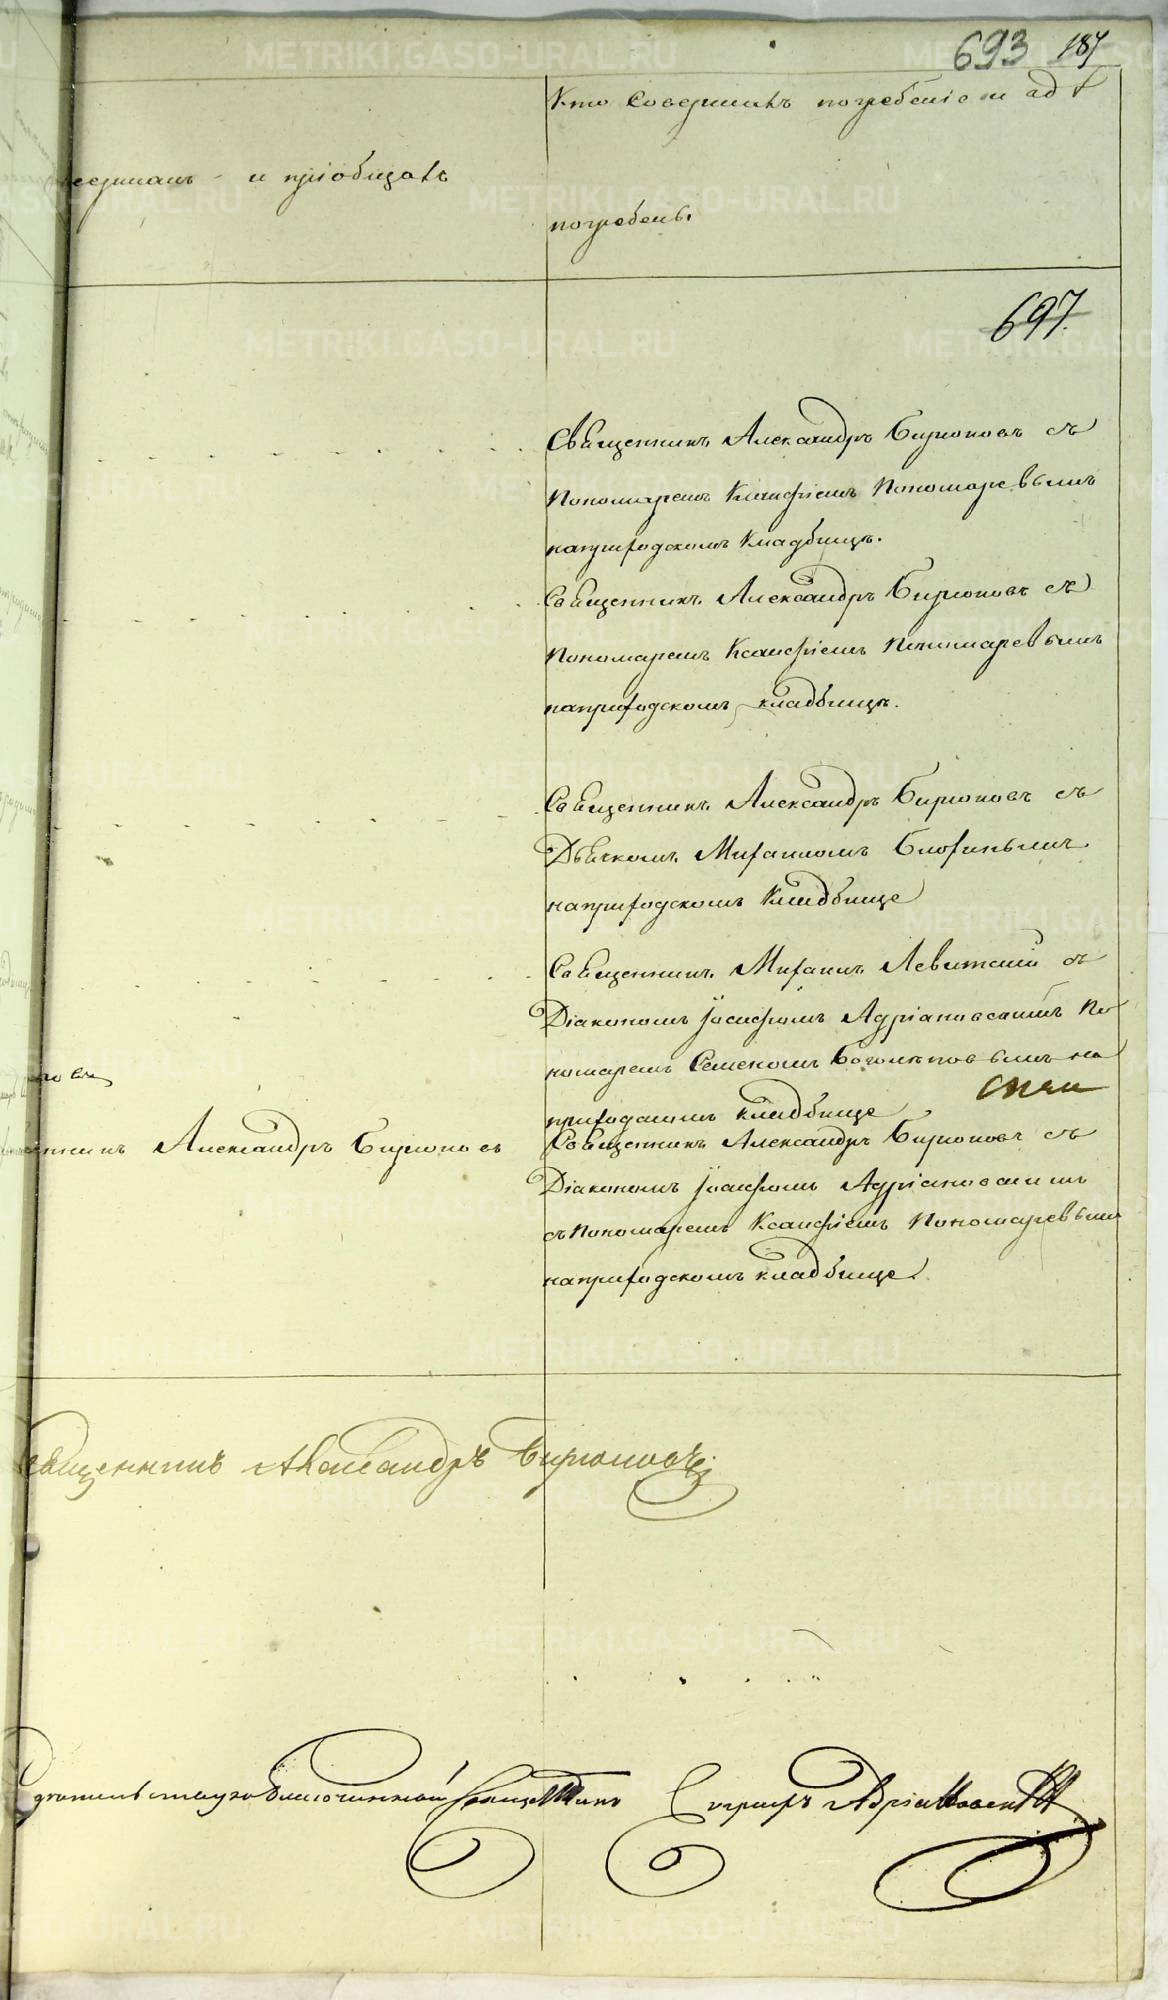 693 187
Кто Совершилъ погребеніе и гдѣ
и пріобщалъ
погребены.
697.
Священникъ Александръ Бирюковъ съ
Пономаремъ Ксанфіемъ Пономаревымъ
наприходскомъ Кладбищѣ.
Священникъ Александръ Бирюковъ съ
Пономаремъ Ксанфіемъ Пономаревымъ
наприходскомъ кладбищѣ.
Священникъ Александръ Бирюковъ съ
Дьячкомъ Михаиломъ
наприходскомъ Кладбище
Священникъ Михаилъ Левитскій съ
Діакономъ Іосифомъ Адріановскимъ По
номаремъ Семеномъ Боголѣповымъ на
приходскомъ кладбище
Александръ Бирюковъ
Священникъ Александръ Бирюковъ съ
Діакономъ Іосифомъ Адріановскимъ
съ Пономаремъ Ксанфіемъ Пономаревымъ
наприходскомъ кладбище.
Священникъ Александръ Бирюковъ
Благочинный Священникъ Адріановскій
METRIKI.GASO-URAL.RU